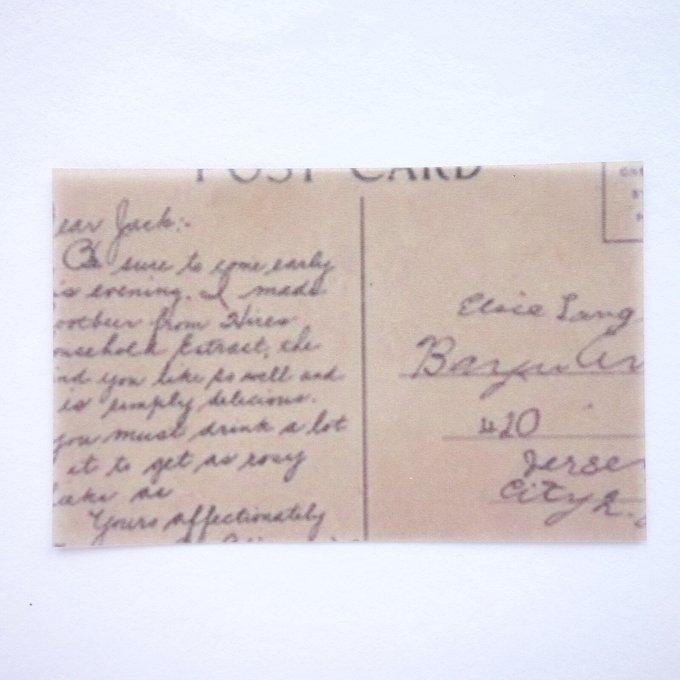 POST CARD
ear Jack:-
Be sure to come early
is evening. I made
ootbeer from Hires
ousehold Extract, the
ind you like so well and
is simply delicious.
you must drink a lot
it to get as rosy
as
Yours affectionately
Elsie Lang
420
Jersey
City